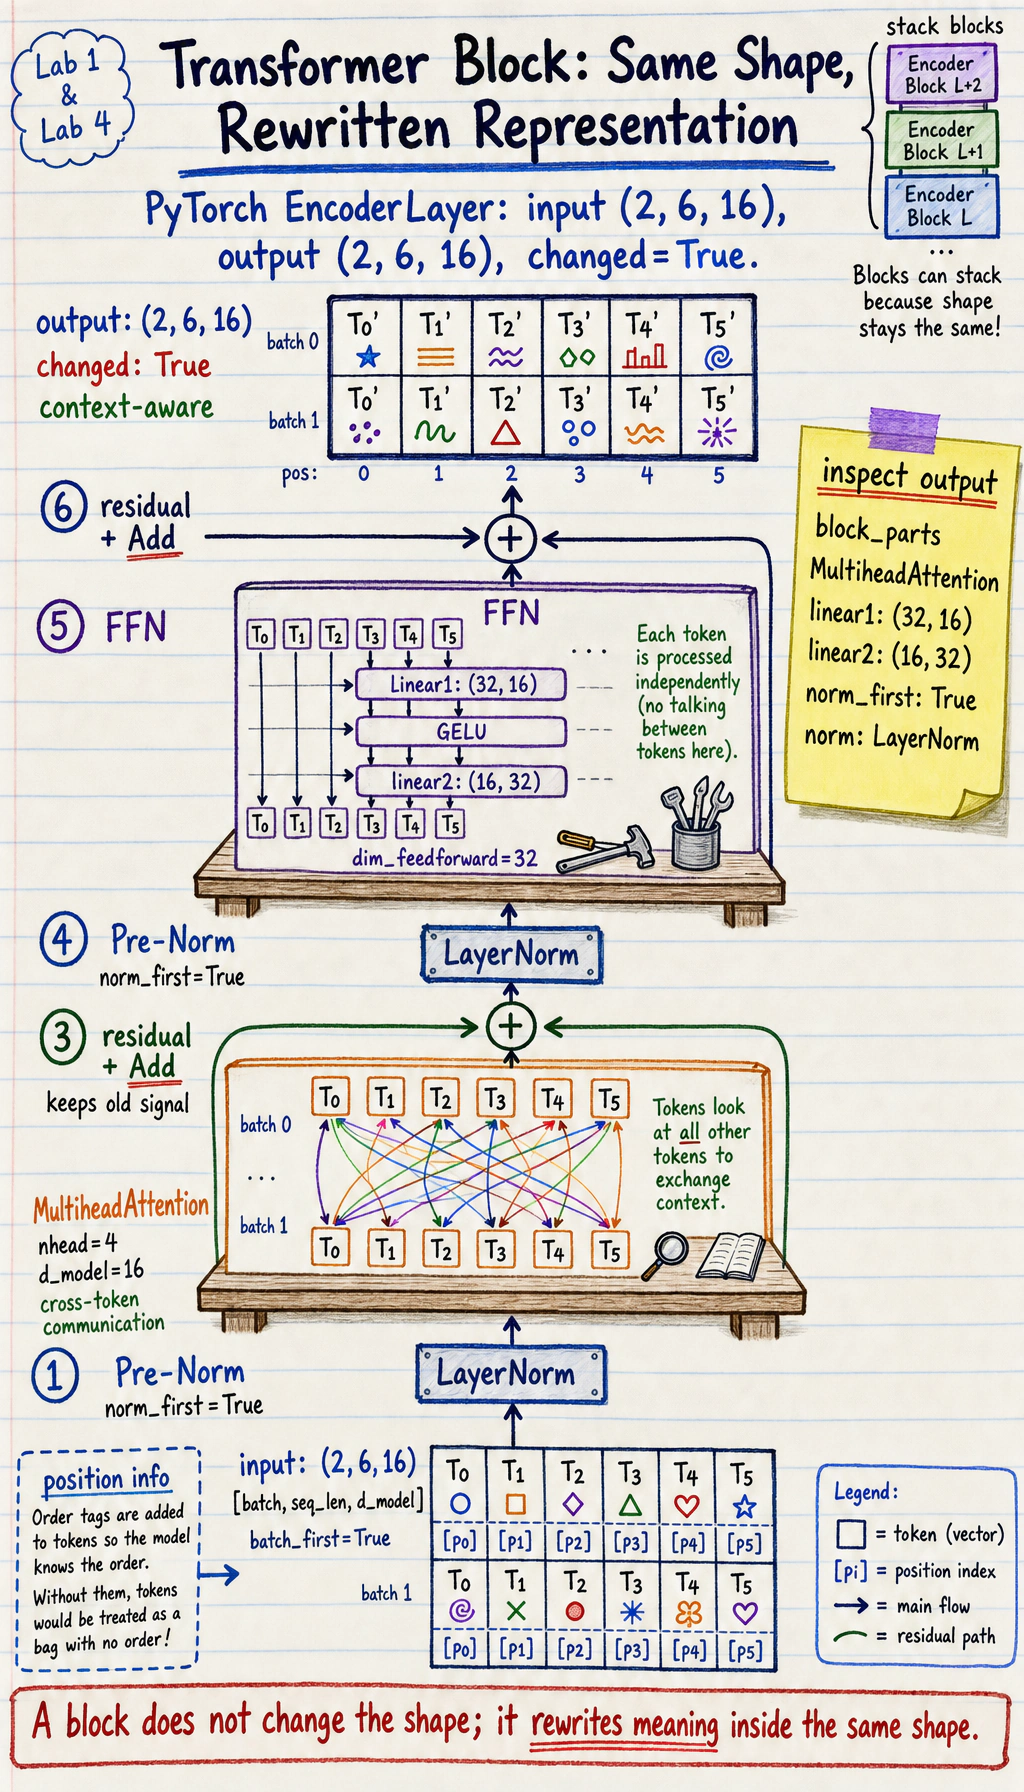 Lab 1
&
Lab 4
Transformer Block: Same Shape,
Rewritten Representation
PyTorch EncoderLayer: input (2, 6, 16),
output (2, 6, 16), changed=True.
stack blocks
Encoder
Block L+2
Encoder
Block L+1
Encoder
Block L
...
Blocks can stack
because shape
stays the same!
output: (2, 6, 16)
changed: True
context-aware
batch 0
T0' T1' T2' T3' T4' T5'
batch 1
T0' T1' T2' T3' T4' T5'
pos: 0 1 2 3 4 5
inspect output
block_parts
MultiheadAttention
linear1: (32, 16)
linear2: (16, 32)
norm_first: True
norm: LayerNorm
6 residual
+ Add
+
5 FFN
FFN
T0 T1 T2 T3 T4 T5
...
Linear1: (32, 16)
GELU
linear2: (16, 32)
T0 T1 T2 T3 T4 T5
dim_feedforward=32
Each token
is processed
independently
(no talking
between
tokens here).
4 Pre-Norm
norm_first=True
LayerNorm
3 residual
+ Add
keeps old signal
+
batch 0
T0 T1 T2 T3 T4 T5
...
batch 1
T0 T1 T2 T3 T4 T5
Tokens look
at all other
tokens to
exchange
context.
MultiheadAttention
nhead=4
d_model=16
cross-token
communication
1 Pre-Norm
norm_first=True
LayerNorm
position info
Order tags are added
to tokens so the model
knows the order.
Without them, tokens
would be treated as a
bag with no order!
input: (2,6,16)
[batch, seq_len, d_model]
batch_first=True
batch 1
T0 T1 T2 T3 T4 T5
[p0] [p1] [p2] [p3] [p4] [p5]
T0 T1 T2 T3 T4 T5
[p0] [p1] [p2] [p3] [p4] [p5]
Legend:
= token (vector)
[pi] = position index
= main flow
= residual path
A block does not change the shape; it rewrites meaning inside the same shape.